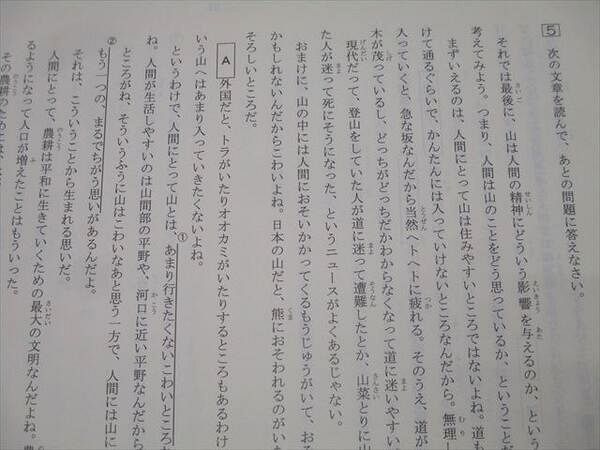 5 次の文章を読んで、あとの問題に答えなさい。
それでは最後に、山は人間の精神にどういう影響を与えるのか、という
考えてみよう。つまり、人間は山のことをどう思っているか、ということだ
まずいえるのは、人間にとって山は住みやすいところではないよね。道も
けて通るぐらいで、かんたんには入っていけないところなんだから。無理
入っていくと、急な坂なんだから当然ヘトヘトに疲れる。そのうえ、道が
木が茂っているし、どっちがどっちだかわからなくなって道に迷いやすい
現代だって、登山をしていた人が道に迷って遭難したとか、山菜とりに山
た人が迷って死にそうになった、というニュースがよくあるじゃない。
おまけに、山の中には人間におそいかかってくるもうじゅうがいて、おそ
かもしれないんだからこわいよね。日本の山だと、熊におそわれるのがい
そろしいところだ。
A 外国だと、トラがいたりオオカミがいたりするところもあるわけ
いう山へはあまり入っていきたくないよね。
というわけで、人間にとって山とは、①あまり行きたくないこわいところ
ね。人間が生活しやすいのは山間部の平野や、河口に近い平野なんだから
ところがね、そういうふうに山はこわいなあと思う一方で、人間には山に
②もう一つの、まるでちがう思いがあるんだよ。
それは、こういうことから生まれる思いだ。
人間にとって、農耕は平和に生きていくための最大の文明なんだよね。農
るようになって人口が増えたことはもういった。
その農耕のためには、